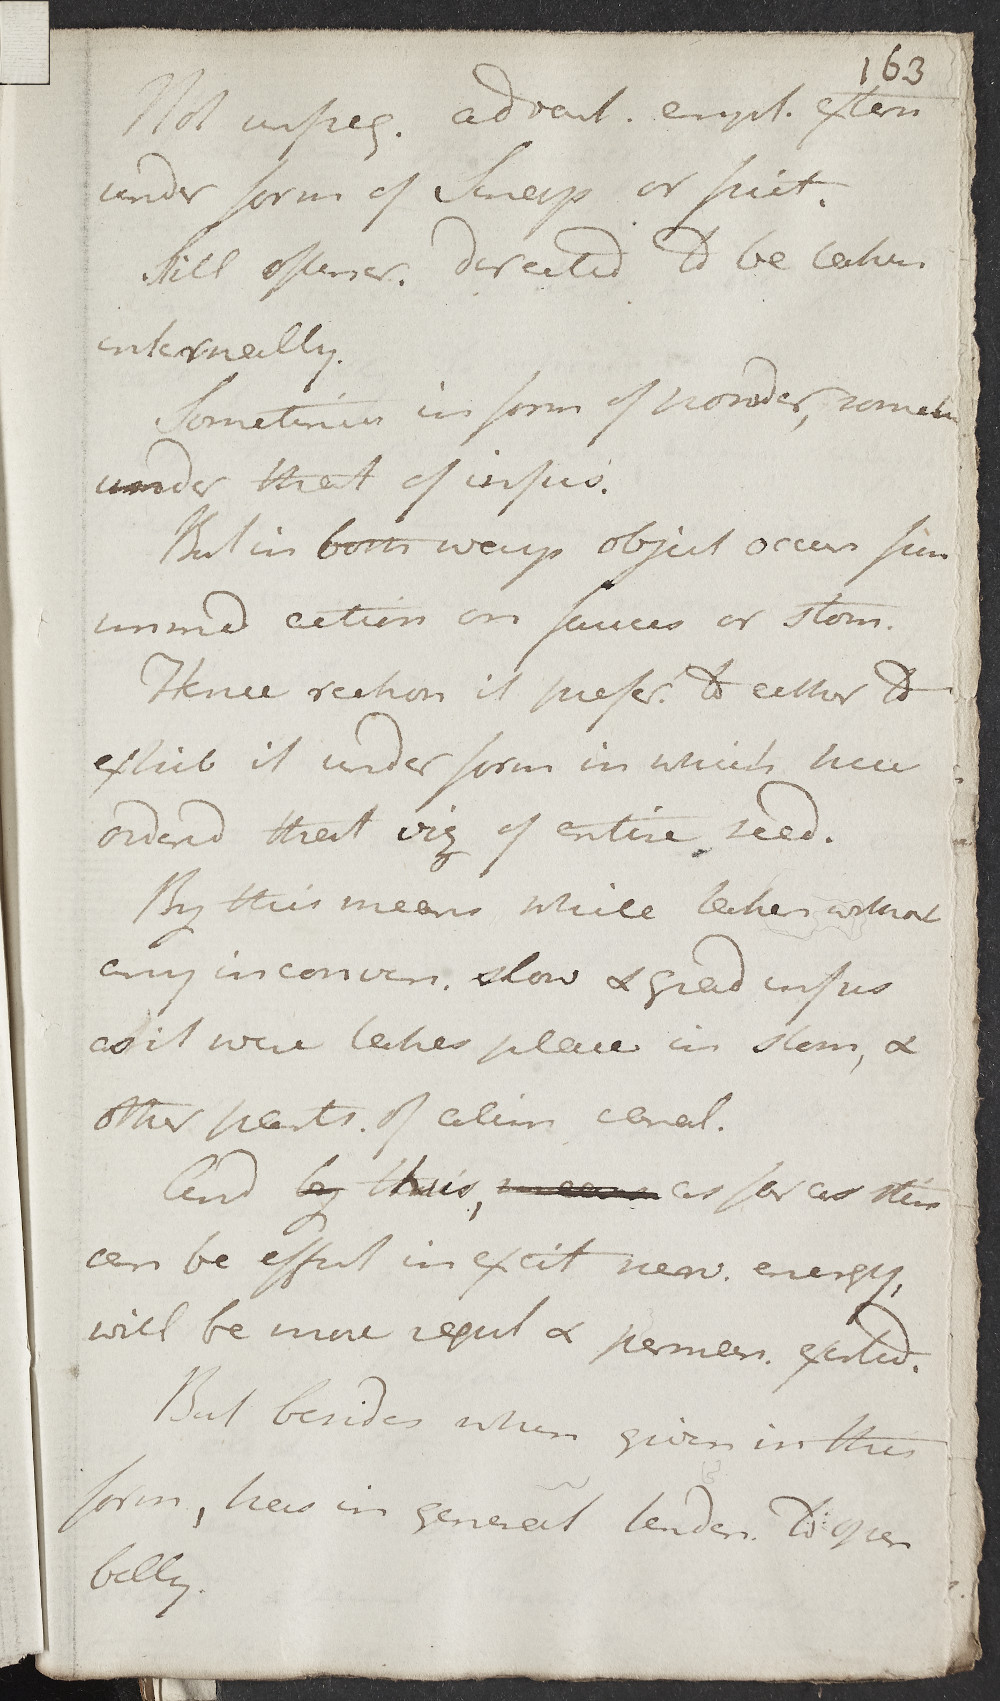 163
Not infreq. advant. empl. extern
under form of Sinap or
Still oftener. directed to be taken
internally.
Sometimes in form of powder, sometim
under that of infus.
But in both ways object occurs from
immed action on fauces or stom.
Hence reckon it prefer. to either to
exhib it under form in which here
ordered that viz of entire seed.
By this means while taken without
any inconven. slow & grad infus
as it were takes place in stom, &
other parts. of alim canal.
And by this, means as far as this
can be effect in excit nerv. energy,
will be more regul & perman. exerted.
But besides when given in this
form, has in general tenden. to open
belly.